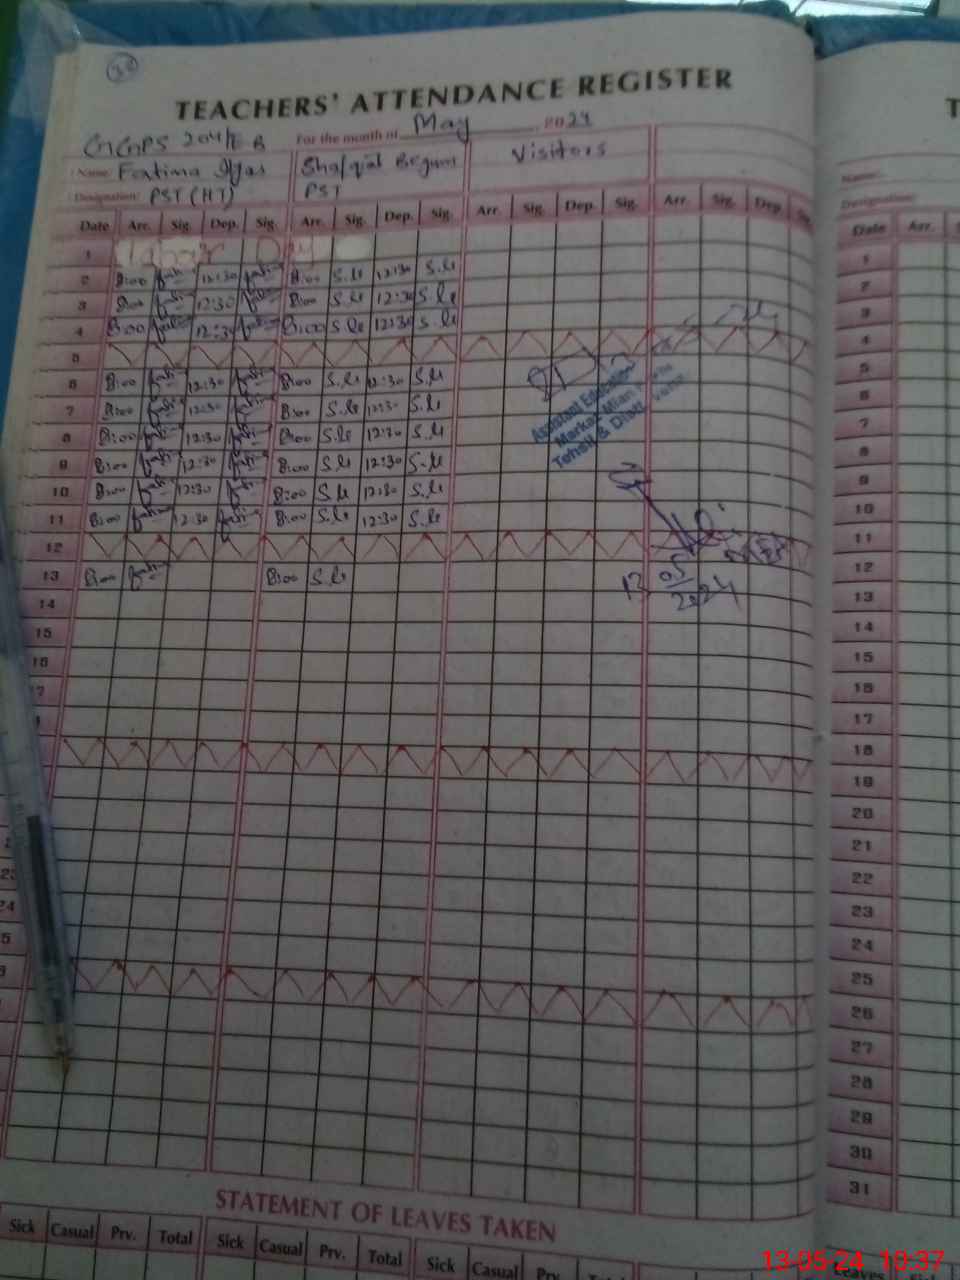 30
TEACHERS' ATTENDANCE REGISTER
GGPS 204/EB For the month of May 2024
Name: Fatima Ilyas Shafqat Begum Visitors
Designation: PST (HT) PST
Date Arr. Sig. Dep. Sig. Arr. Sig. Dep. Sig. Arr. Sig. Dep. Sig. Arr. Sig. Dep.
1 Labour Day
2 8:00 12:30 8:00 12:30
3 8:00 12:30 8:00 12:30
4 8:00 12:30 8:00 12:30
5
6 8:00 12:30 8:00 12:30
7 8:00 12:30 8:00 12:30
8 8:00 12:30 8:00 12:30
9 8:00 12:30 8:00 12:30
10 8:00 12:30 8:00 12:30
11 8:00 12:30 8:00 12:30
12
13 8:00 8:00
14
15
16
17
23
24
Assistant Education
Markaz Mian
Tehsil & Distt.
13/05/2024
STATEMENT OF LEAVES TAKEN
Sick Casual Prv. Total Sick Casual Prv. Total Sick Casual Prv.
T
Name:
Designation:
Date Arr.
1
2
3
4
5
6
7
8
9
10
11
12
13
14
15
16
17
18
19
20
21
22
23
24
25
26
27
28
29
30
31
Leaves
13-05-24 10:37